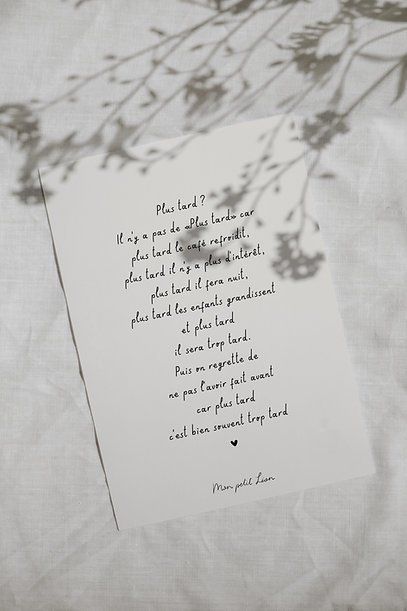 Plus tard ?
Il n'y a pas de «Plus tard» car
plus tard le café refroidit,
plus tard il n'y a plus d'intérêt,
plus tard il fera nuit,
plus tard les enfants grandissent
et plus tard
il sera trop tard.
Puis on regrette de
ne pas l'avoir fait avant
car plus tard
c'est bien souvent trop tard
Mon petit Léon